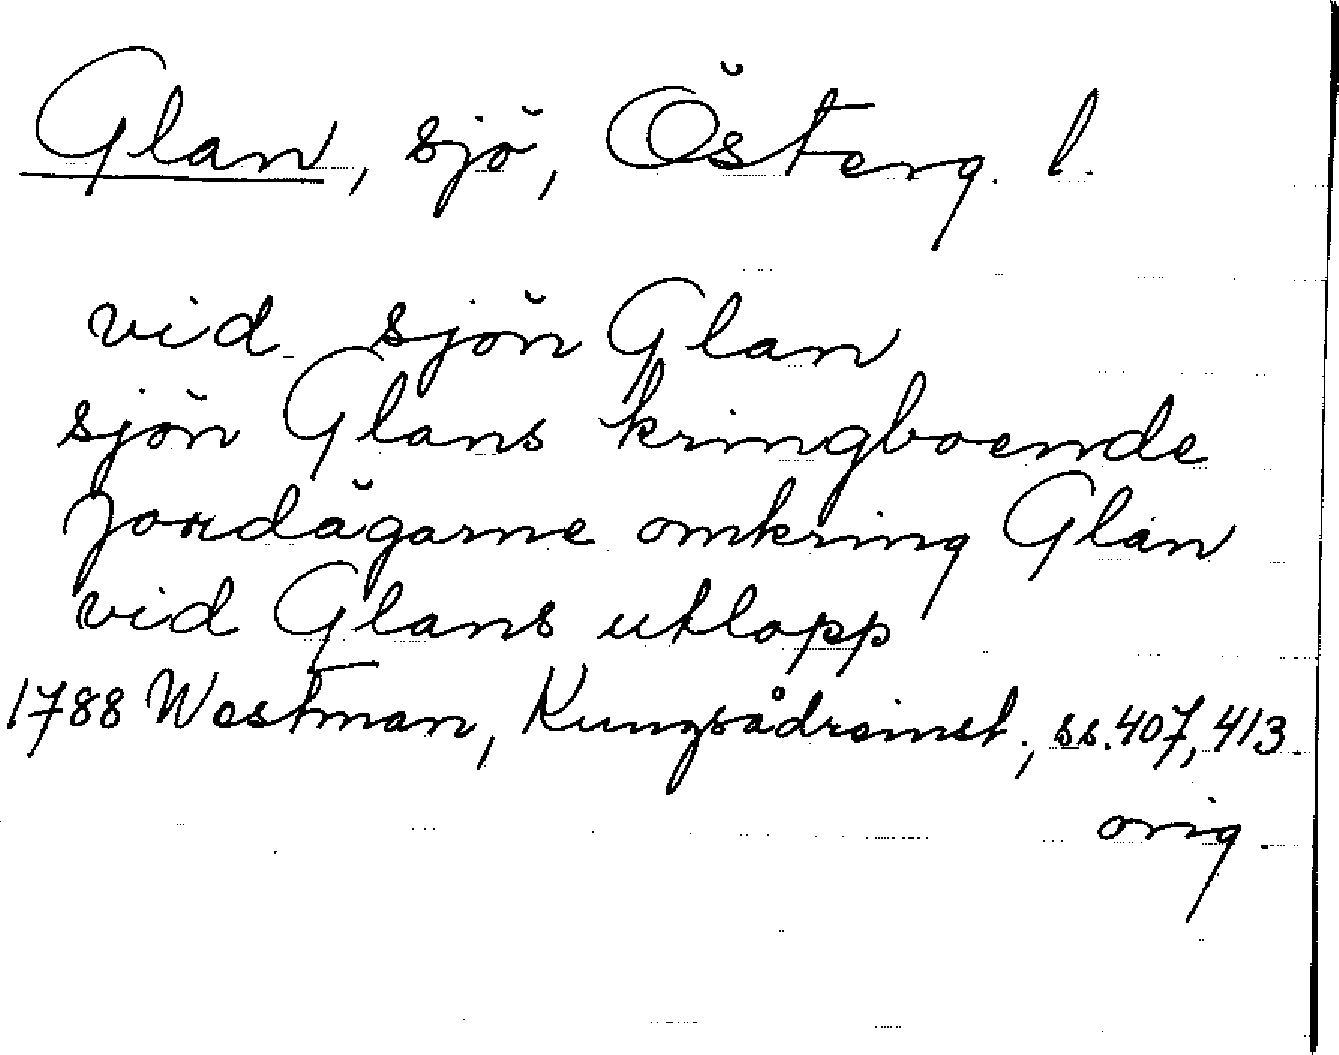 Glan, sjö, Österg. l.
vid sjön Glan
sjön Glans kringboende
jordägarne omkring Glan
vid Glans utlopp
1788 Westman, Kungsådreinst., ss. 407, 413
orig.